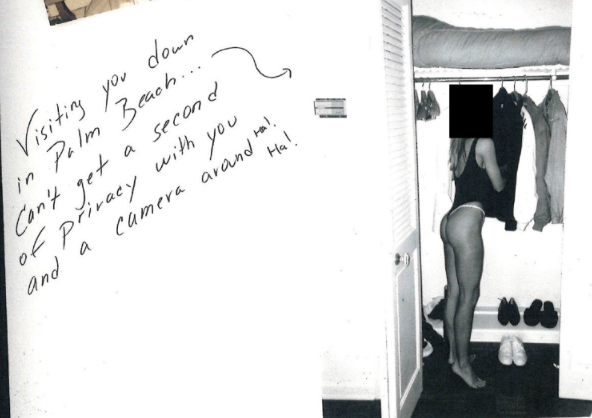 Visiting you down
in Palm Beach...
Can't get a second
of Privacy with you
and a camera around Ha!
Ha!